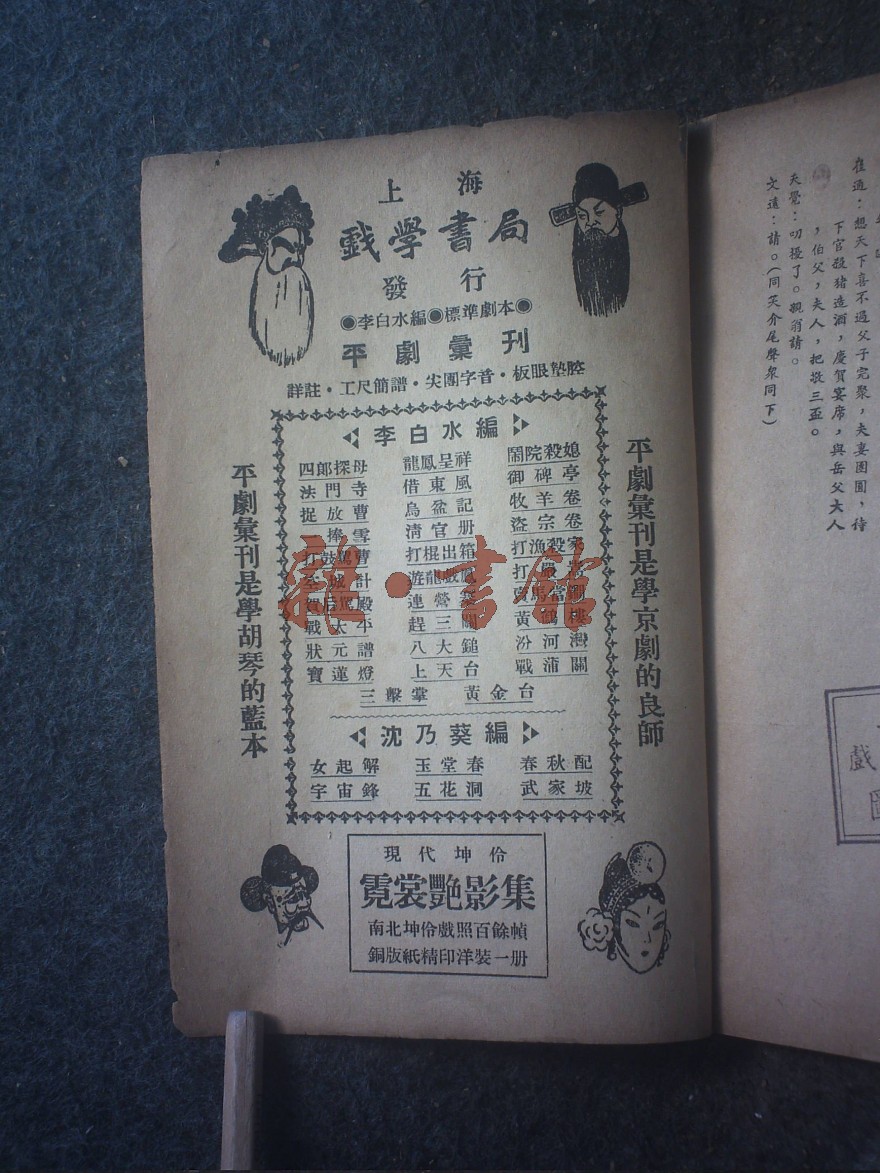 上海
戲學書局
發行
◉李白水編◉標準劇本◉
平劇彙刊
詳註・工尺簡譜・尖團字音・板眼墊腔
平劇彙刊是學胡琴的藍本
平劇彙刊是學京劇的良師
李白水編
四郎探母 龍鳳呈祥 鬧院殺媳
法門寺 借東風 御碑亭
捉放曹 烏盆記 牧羊卷
捧雪 清官册 盜宗卷
打鼓罵曹 打棍出箱 打漁殺家
計 遊龍戲鳳 打
賀后罵殿 連營寨
戰太平 趕三關 黃鶴樓
狀元譜 八大鎚 汾河灣
寶蓮燈 上天台 戰蒲關
三擊掌 黃金台
沈乃葵編
女起解 玉堂春 春秋配
宇宙鋒 五花洞 武家坡
現代坤伶
霓裳艷影集
南北坤伶戲照百餘幀
銅版紙精印洋裝一册
雜・書館
在通：想天下喜不過父子完聚，夫妻團圓，侍
下官殺猪造酒，慶賀宴席，與岳父大人
，伯父，夫人，把敬三盃。
夫覺：叨擾了。親翁請。
文遠：請。（同笑介尾聲衆同下）
戲